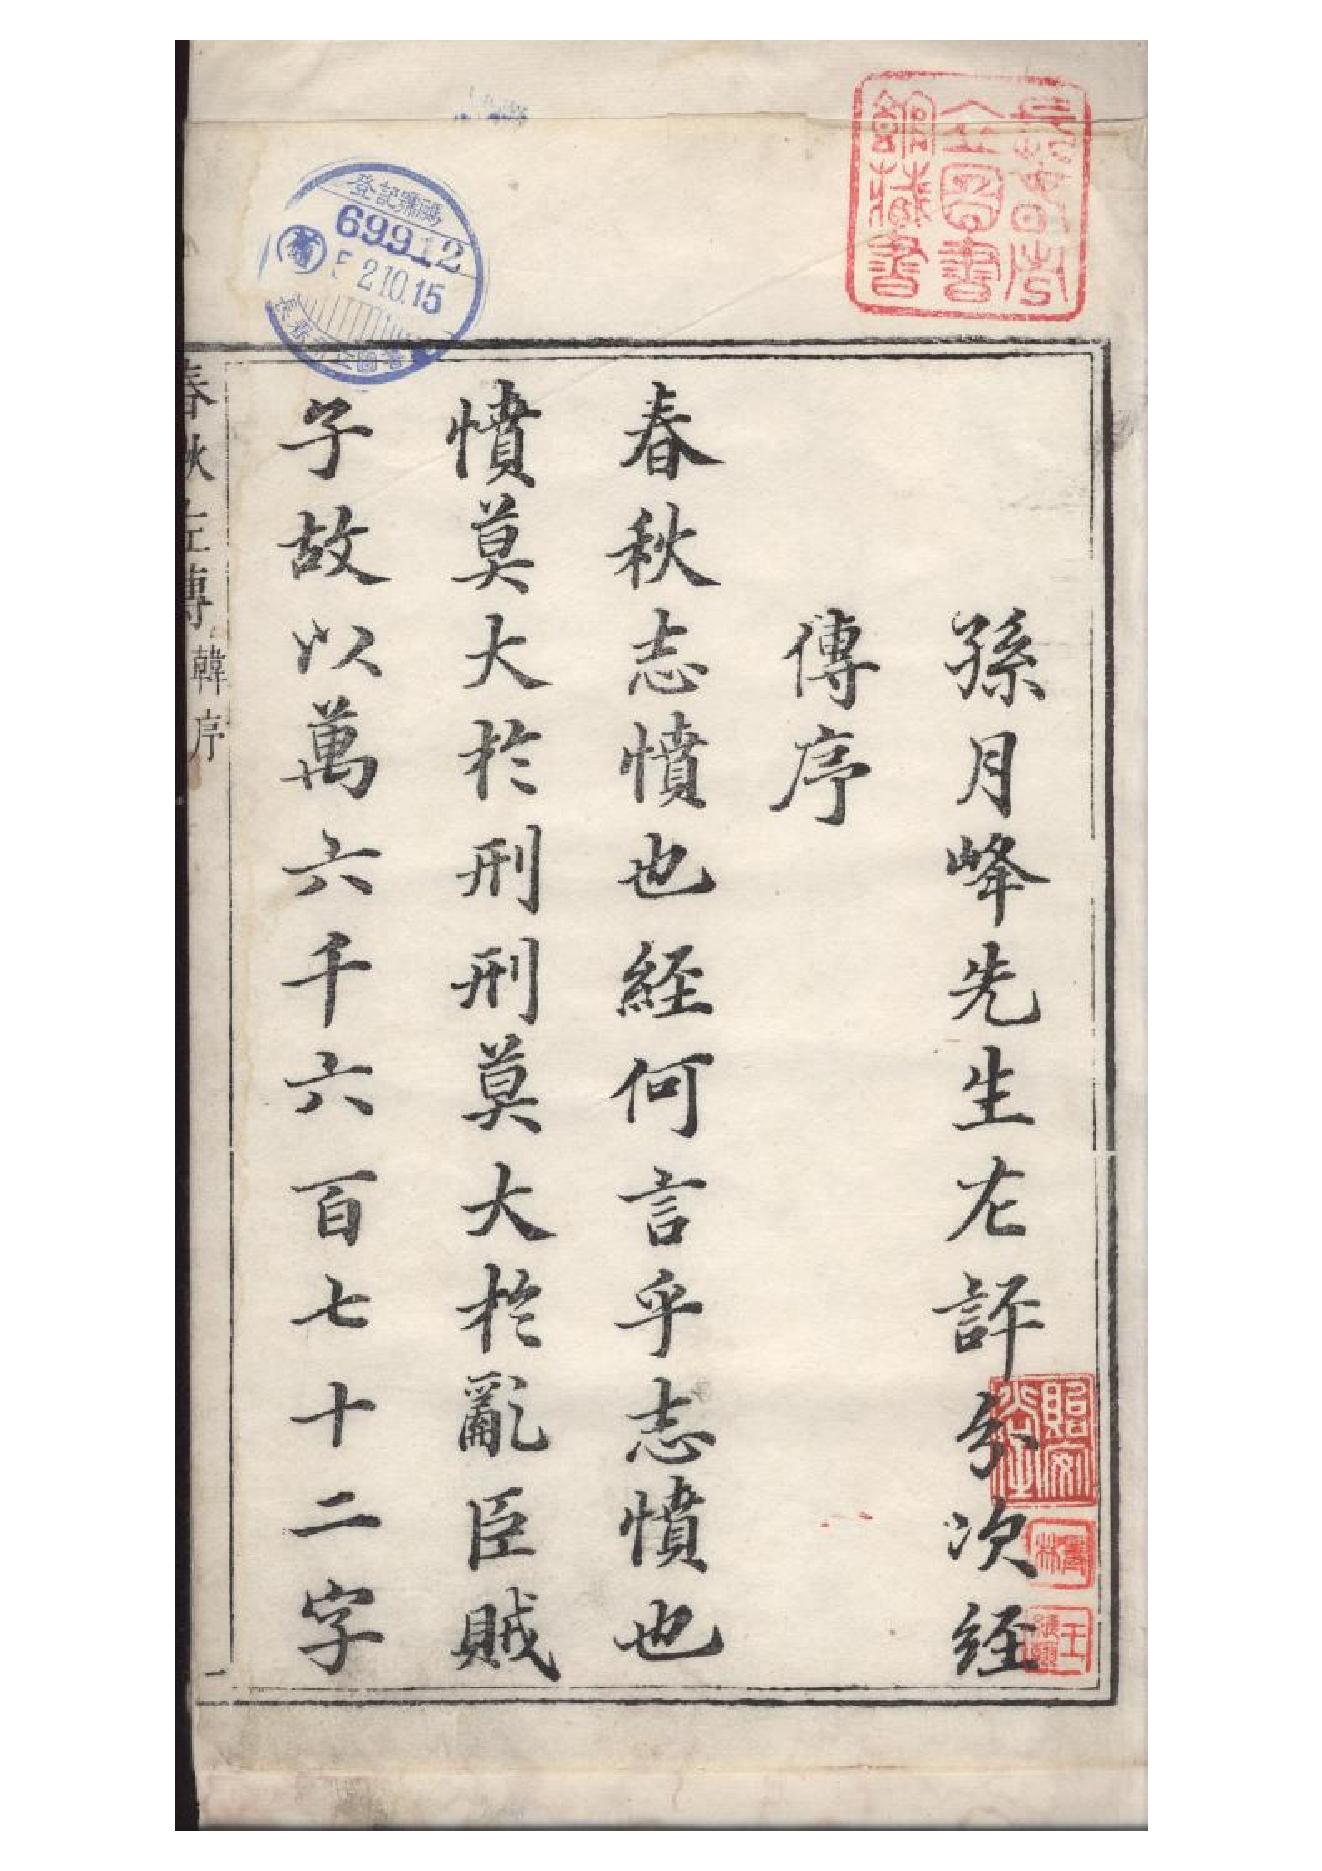 孫月峰先生左評分次経
傳序
春秋志憤也経何言乎志憤也
憤莫大於刑刑莫大於亂臣賊
子故以萬六千六百七十二字
春秋左傳
韓序
一
登記號碼
69912
210.15
長春市立圖書館藏書